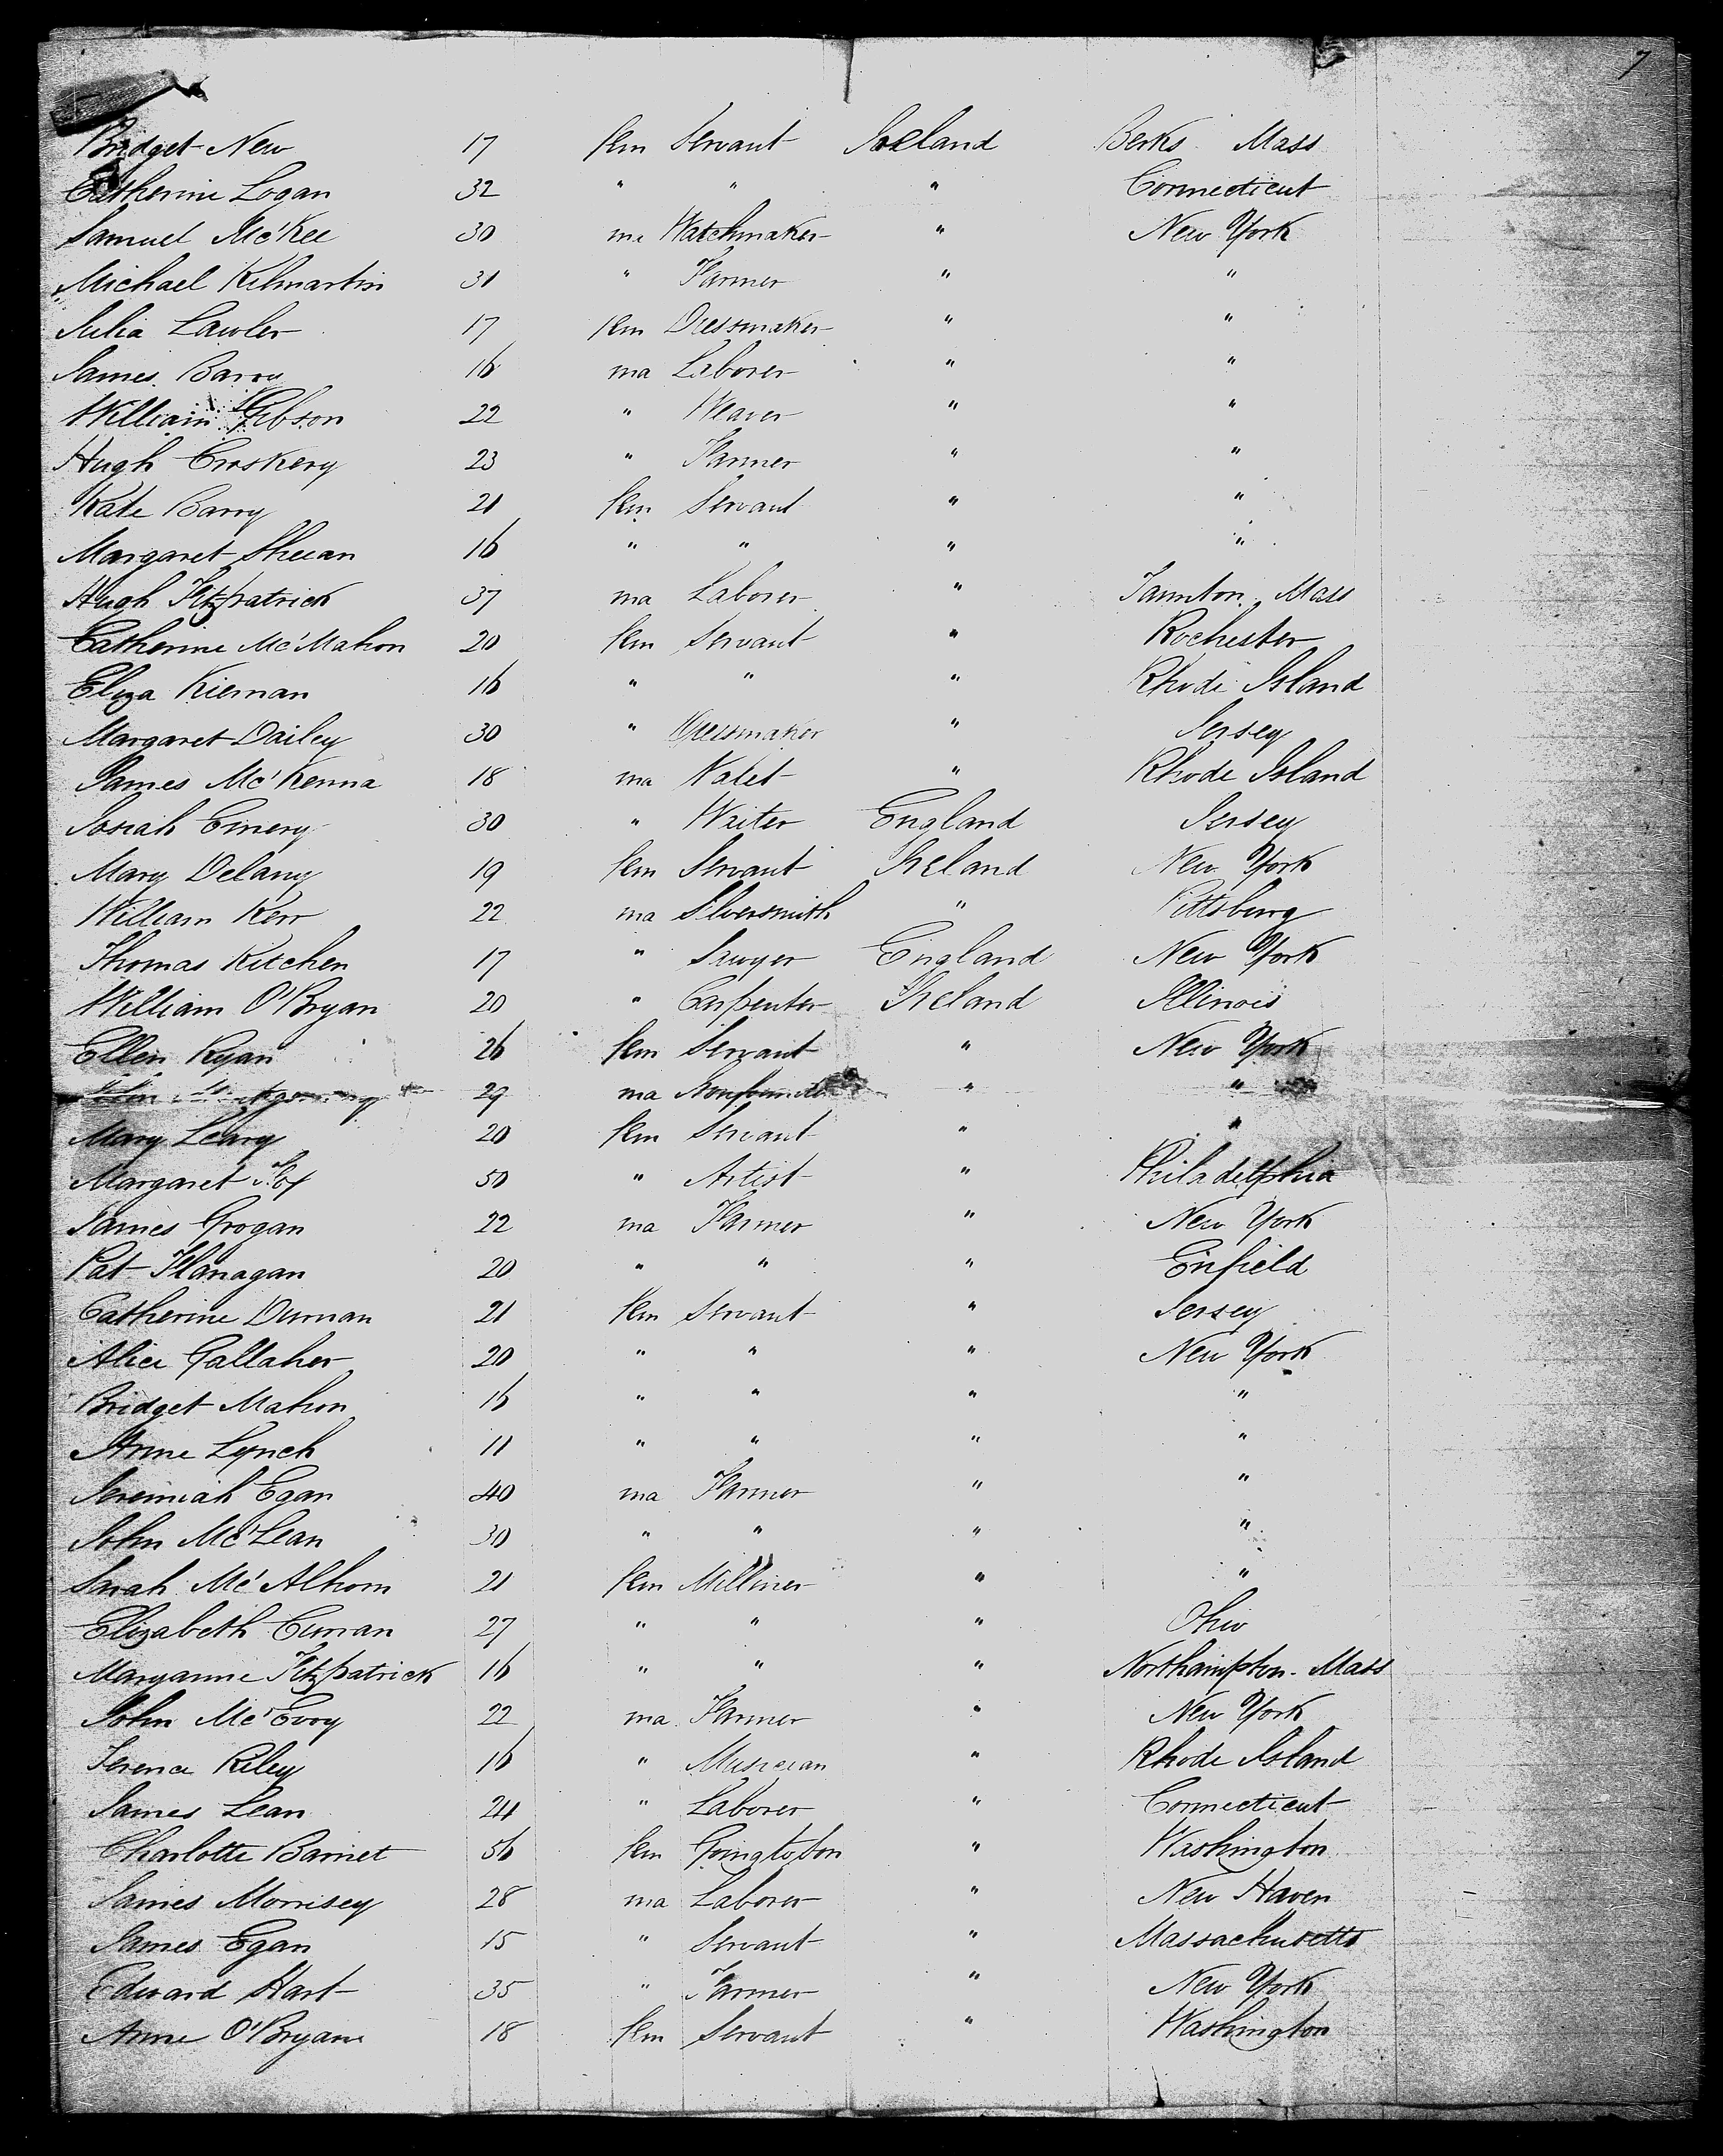 7
Bridget New 17 fem Servant Ireland Berks Mass
Catherine Logan 32 " " " Connecticut
Samuel Mc'Kee 30 ma Watchmaker " New York
Michael Kilmartin 31 " Farmer " "
Julia Lawler 17 fem Dressmaker " "
James Barry 16 ma Laborer " "
William Gibson 22 " Weaver " "
Hugh Croskery 23 " Farmer " "
Kate Barry 21 fem Servant " "
Margaret Sheean 16 " " " "
Hugh Fitzpatrick 37 ma Laborer " Taunton Mass
Catherine Mc'Mahon 20 fem Servant " Rochester
Eliza Kiernan 16 " " " Rhode Island
Margaret Dailey 30 " Dressmaker " Jersey
James Mc'Kenna 18 ma Valet " Rhode Island
Josiah Emery 30 " Writer England Jersey
Mary Delany 19 fem Servant Ireland New York
William Kerr 22 ma Silversmith " Pittsburg
Thomas Kitchen 17 " Sawyer England New York
William O'Bryan 20 " Carpenter Ireland Illinois
Ellen Ryan 26 fem Servant " New York
29 ma " "
Mary Leary 20 fem Servant " "
Margaret 50 " Artist " Philadelphia
James Grogan 22 ma Farmer " New York
Pat Flanagan 20 " " " Enfield
Catherine Durnan 21 fem Servant " Jersey
Alice Gallaher 20 " " " New York
Bridget Mahon 16 " " " "
Anne Lynch 11 " " " "
Jeremiah Egan 40 ma Farmer " "
John Mc'Lean 30 " " " "
Sarah Mc'Alhom 21 fem Milliner " "
Elizabeth Curran 27 " " " Ohio
Maryanne Fitzpatrick 16 " " " Northampton. Mass
John Mc'Evoy 22 ma Farmer " New York
Terence Riley 16 " Musician " Rhode Island
James Lean 24 " Laborer " Connecticut
Charlotte Barnet 56 fem Going to Son " Washington
James Morrisey 28 ma Laborer " New Haven
James Egan 15 " Servant " Massachusetts
Edward Hart 35 " Farmer " New York
Anne O'Bryan 18 fem Servant " Washington